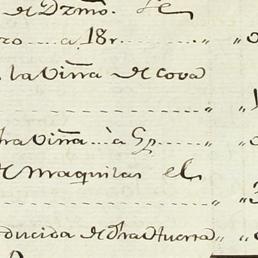 de Dzmo. Se
zo.....a 18 r......,,
la viña de cova
..............,,
tra viña...à Gp......,,
de maquilas el
..............,,
oducida de otra Huerta,,